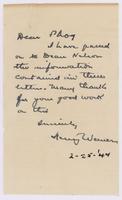 Dear Phog
I have passed
on to Dean Nelson
the information
contained in these
letters. Many thanks
for your good work
on this
Sincerely,
Henry Werner
2-25-44